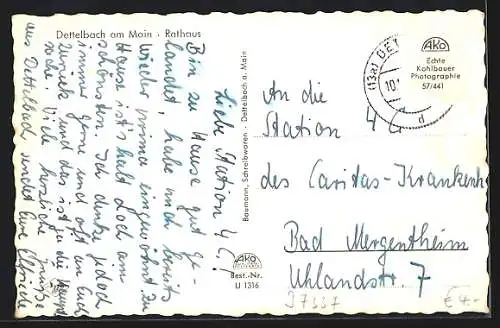 Dettelbach am Main · Rathaus
Liebe Station 4 C!
Bin zu Hause gut ge-
landet, habe mich bereits
wieder prima eingewöhnt zu
Hause ist's halt doch am
schönsten. Ich denke jedoch
immer gerne und oft an Euch
zurück und das ist ja die
sache! Viele herzliche Grüße
aus Dettelbach sendet Eure
Baumann, Schreibwaren · Dettelbach a. Main
Ako
Best.-Nr.
U 1316
(13a) DET
10
d
Ako
Echte
Kohlbauer
Photographie
57/441
An die
Station 4 C
des Caritas-Krankenh
Bad Mergentheim
Uhlandstr. 7
97337
€ 4-